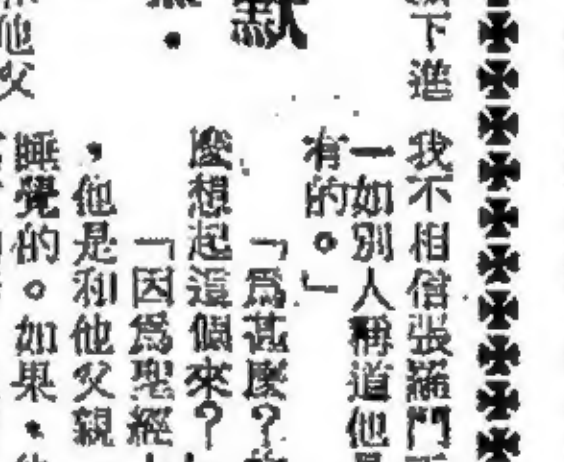 下進
我不相信張羅門
一如別人稱道他
有的。」
「爲甚麼?
麼想起這個來?
「因爲聖經
,他是和他父親
睡覺的。如果,
默
他父